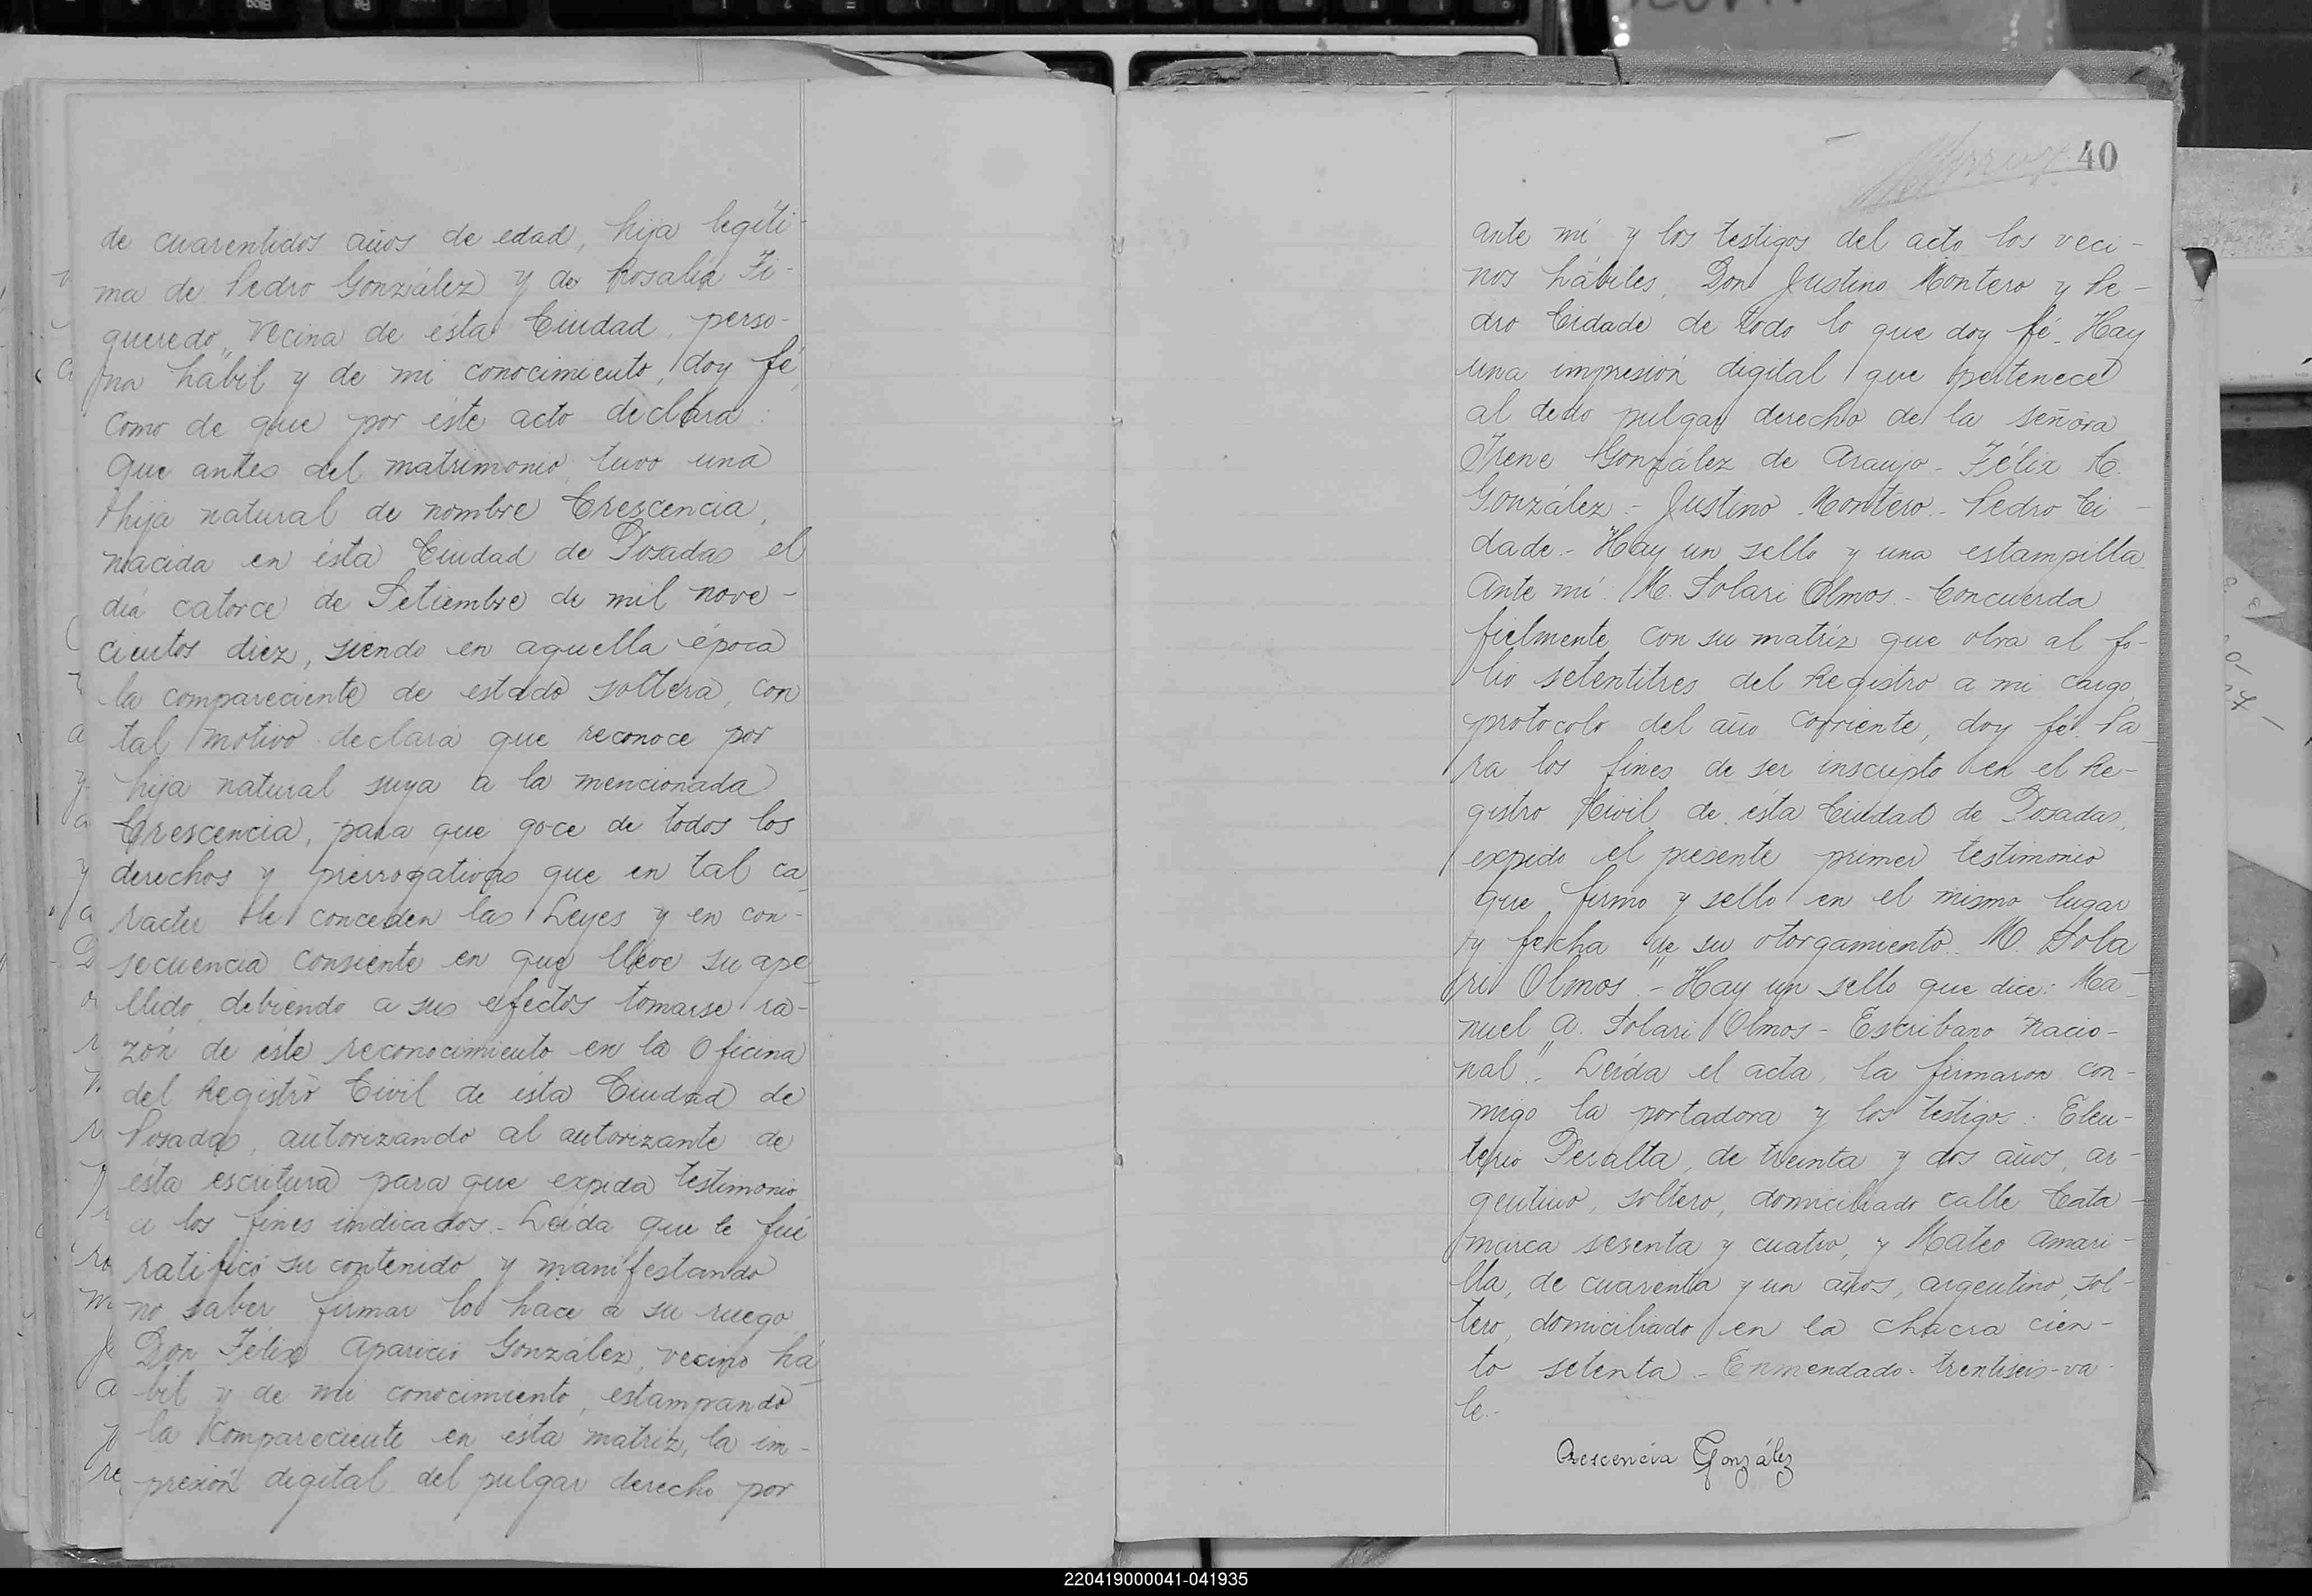 de cuarentidos años de edad, hija legíti-
ma de Pedro González y de Rosalía Fi-
queredo, vecina de ésta Ciudad, perso-
na hábil y de mi conocimiento, doy fé,
como de que por éste acto declara:
Que antes del matrimonio tuvo una
hija natural de nombre Crescencia,
nacida en ésta Ciudad de Posadas el
día catorce de Setiembre de mil nove-
cientos diez, siendo en aquella época
la compareciente de estado soltera, con
tal motivo declara que reconoce por
hija natural suya a la mencionada
Crescencia, para que goce de todos los
derechos y prerrogativas que en tal ca-
racter le conceden las Leyes y en con-
secuencia consiente en que lleve su ape-
llido, debiendo a sus efectos tomarse ra-
zón de éste reconocimiento en la Oficina
del Registro Civil de ésta Ciudad de
Posadas, autorizando al autorizante de
ésta escritura para que expida testimonio
a los fines indicados.- Leída que le fué
ratificó su contenido y manifestando
no saber firmar lo hace a su ruego
Don Félix Aparicio González, vecino há-
bil y de mi conocimiento, estampando
la compareciente en ésta matriz, la im-
presión digital del pulgar derecho por
40
ante mí y los testigos del acto los veci-
nos hábiles, Don Justino Montero y Pe-
dro Cidade de todo lo que doy fé.- Hay
una impresión digital que pertenece
al dedo pulgar derecho de la señora
Irene González de Araujo.- Félix A.
González.- Justino Montero.- Pedro Ci-
dade.- Hay un sello y una estampilla.
Ante mí: M. Solari Olmos.- Concuerda
fielmente con su matriz que obra al fo-
lio setentitres del Registro a mi cargo,
protocolo del año corriente, doy fé. Pa-
ra los fines de ser inscripto en el Re-
gistro Civil de ésta Ciudad de Posadas,
expido el presente primer testimonio
que firmo y sello en el mismo lugar
y fecha de su otorgamiento. M. Sola
ri Olmos".- Hay un sello que dice: Ma-
nuel A. Solari Olmos - Escribano Nacio-
nal".- Leída el acta, la firmaron con-
migo la portadora y los testigos: Eleu-
terio Peralta, de treinta y dos años, ar-
gentino, soltero, domiciliado calle Cata-
marca sesenta y cuatro, y Mateo Amari-
lla, de cuarenta y un años, argentino, sol-
tero, domiciliado en la chacra cien-
to setenta.- Enmendado- trentiseis-va-
le.-
Crescencia González
220419000041-041935